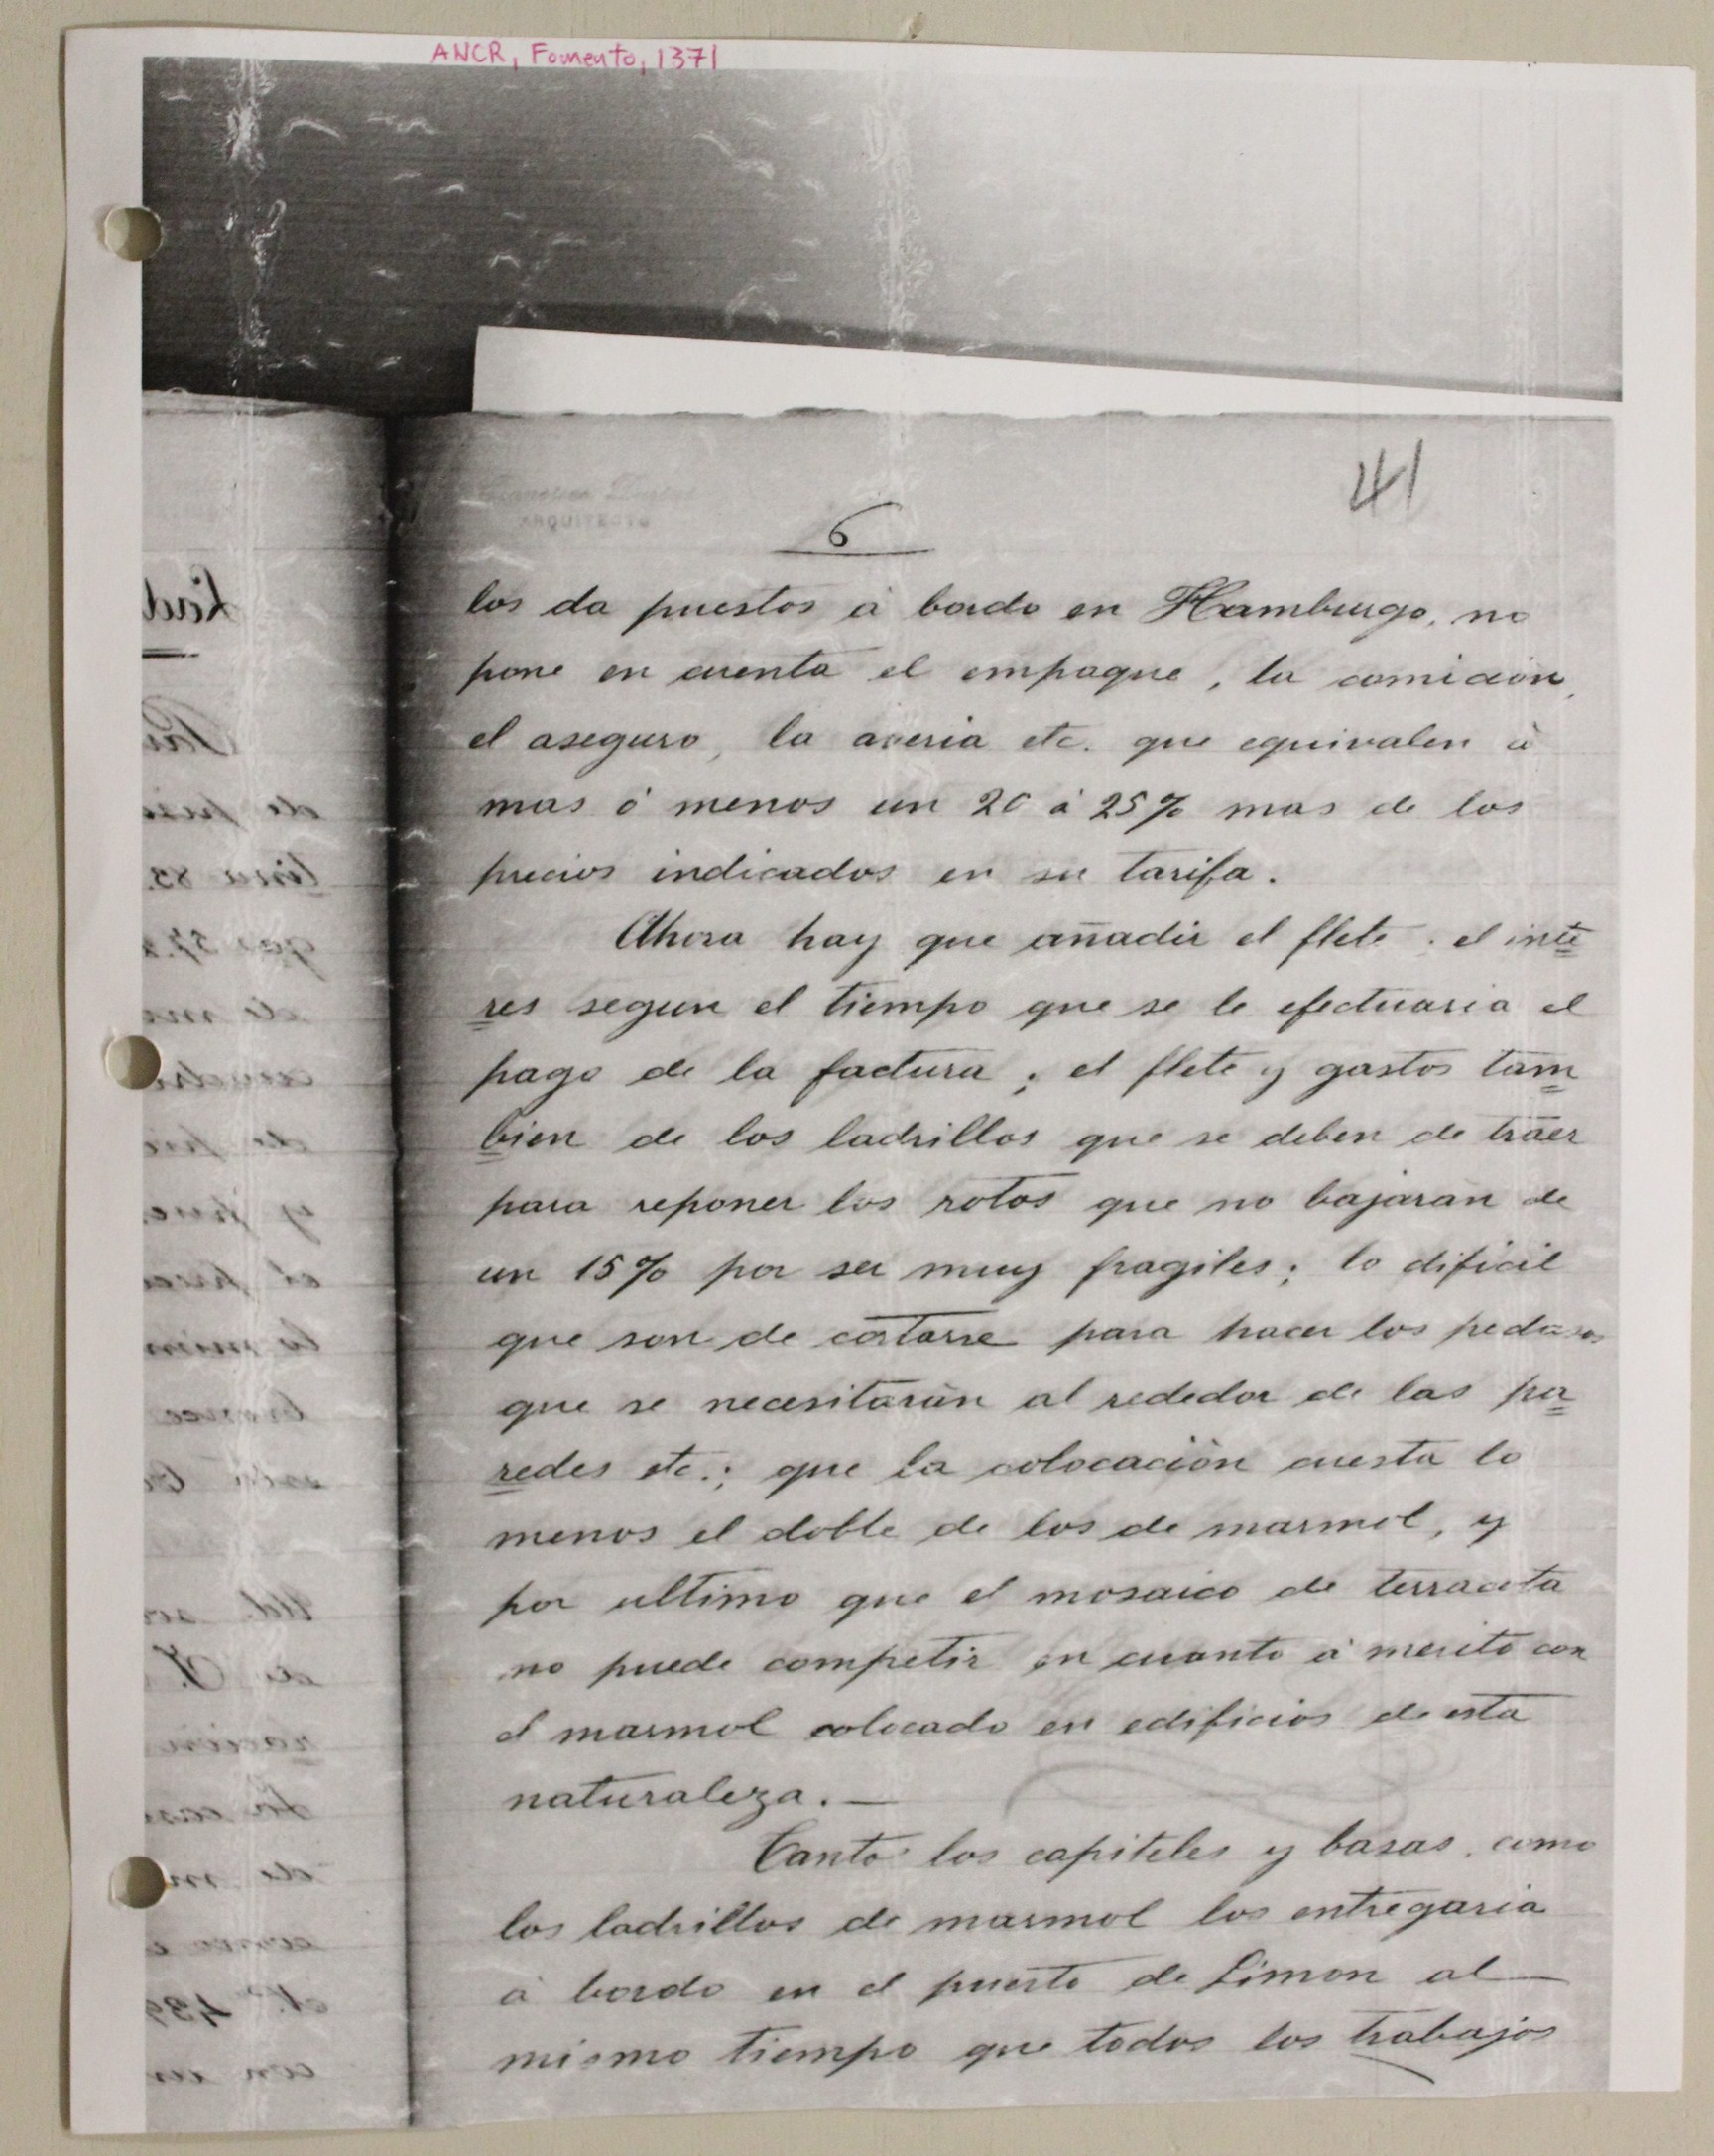 ANCR, Fomento, 1371
41
ARQUITECTO
6
los da puestos á bordo en Hamburgo, no
pone en cuenta el empaque, la comición,
el aseguro, la averia etc. que equivalen á
mas ó menos un 20 á 25% mas de los
precios indicados en su tarifa.
Ahora hay que añadir el flete; el inte
res segun el tiempo que se le efectuaria el
pago de la factura; el flete y gastos tam
bien de los ladrillos que se deben de traer
para reponer los rotos que no bajarán de
un 15% por ser muy fragiles; lo dificil
que son de cortarse para hacer los pedasos
que se necesitarán al rededor de las pa
redes etc.; que la colocación cuesta lo
menos el doble de los de marmol, y
por ultimo que el mosaico de terracota
no puede competir en cuanto á merito con
el marmol colocado en edificios de esta
naturaleza.—
Tanto los capiteles y basas, como
los ladrillos de marmol los entregaria
á bordo en el puerto de Limon al—
mismo tiempo que todos los trabajos